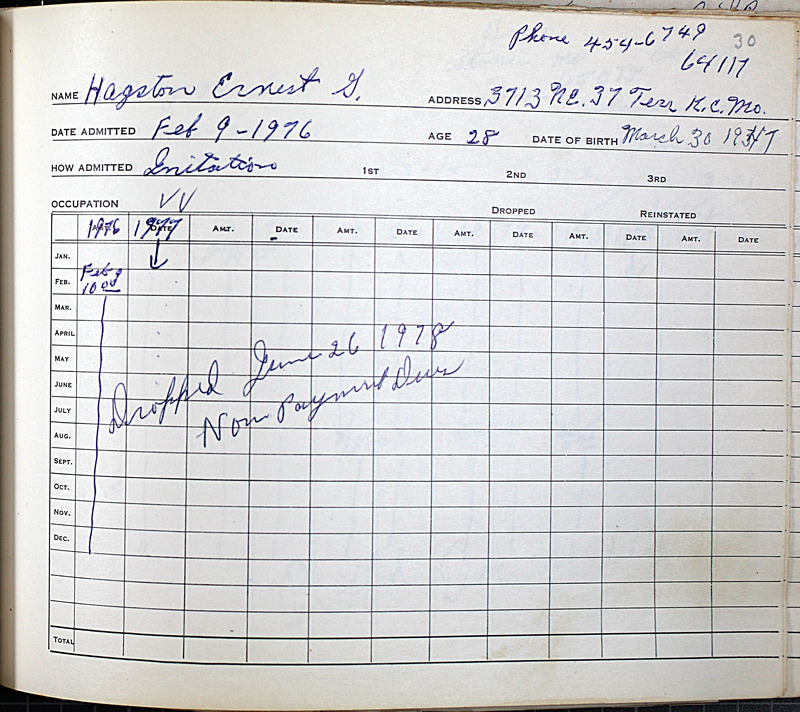 Phone 454-6749 30
64117
NAME Hagston Ernest G. ADDRESS 3713 N.E. 37 Terr K.C. Mo.
DATE ADMITTED Feb 9-1976 AGE 28 DATE OF BIRTH March 30 1947
HOW ADMITTED Initation 1ST 2ND 3RD
OCCUPATION VV DROPPED REINSTATED
1976 1977 AMT. DATE AMT. DATE AMT. DATE AMT. DATE AMT. DATE
JAN.
FEB. Feb 9
10 00
MAR.
APRIL
MAY
JUNE
JULY
AUG.
SEPT.
OCT.
NOV.
DEC.
Dropped June 26 1978
Non Payment Dues
TOTAL